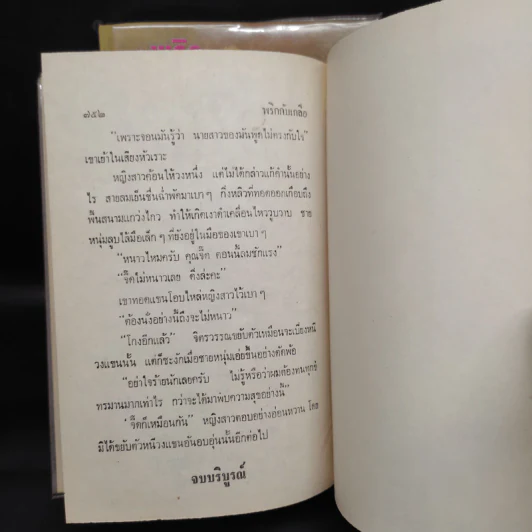 ๗๕๒ พริกกับเกลือ
"เพราะจอนมันรู้ว่า นายสาวของมันพูดไม่ตรงกับใจ"
เขาเย้าในเสียงหัวเราะ
หญิงสาวค้อนให้วงหนึ่ง แต่ไม่ได้กล่าวแก้คำนั้นอย่าง
ไร สายลมเย็นชื่นฉ่ำพัดมาเบา ๆ กิ่งหลิวที่ทอดออกเกือบถึง
พื้นสนามแกว่งไกว ทำให้เกิดเงาดำเคลื่อนไหววูบวาบ ชาย
หนุ่มลูบไล้มือเล็ก ๆ ที่ยังอยู่ในมือของเขาเบา ๆ
"หนาวไหมครับ คุณจี๊ด ตอนนี้ลมชักแรง"
"จี๊ดไม่หนาวเลย ตึ๋งล่ะคะ"
เขาทอดแขนโอบไหล่หญิงสาวไว้เบา ๆ
"ต้องนั่งอย่างนี้ถึงจะไม่หนาว"
"โกงอีกแล้ว" จิตรวรรณขยับตัวเหมือนจะเบี่ยงหนี
วงแขนนั้น แต่ก็ชะงักเมื่อชายหนุ่มเอ่ยขึ้นอย่างตัดพ้อ
"อย่าใจร้ายนักเลยครับ ไม่รู้หรือว่าผมต้องทนทุกข์
ทรมานมากเท่าไร กว่าจะได้มาพบความสุขอย่างนี้"
"จี๊ดก็เหมือนกัน" หญิงสาวตอบอย่างอ่อนหวาน โดย
มิได้ขยับตัวหนีวงแขนอันอบอุ่นนั้นอีกต่อไป
จบบริบูรณ์